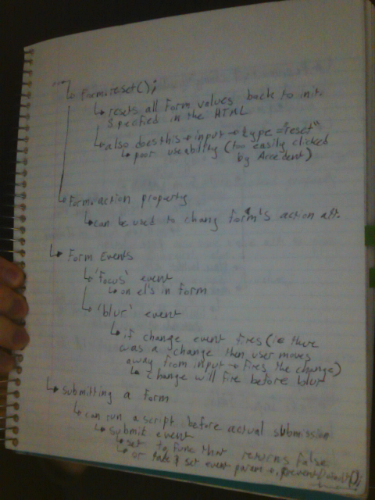 ↳ form.reset();
↳ resets all form values back to init.
specified in the HTML
↳ also does this → input → type="reset"
↳ poor usability (too easily clicked
by Accident)
↳ form.action property
↳ can be used to change form's action att.
↳ Form Events
↳ 'focus' event
↳ on el's in form
↳ 'blur' event
↳ if change event fires (ie there
was a change then user moves
away from input → fires the change)
↳ change will fire before blur
↳ submitting a form
↳ can run a script before actual submission
↳ submit event
↳ set to func that returns false
↳ or take & set event param